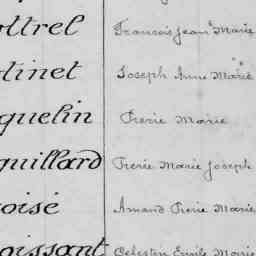 ottrel François Jean Marie
tinet Joseph Anne Marie
quelin Pierre Marie
quillard Pierre Marie Joseph
oisé Amand Pierre Marie
oissant Célestin Emile Marie